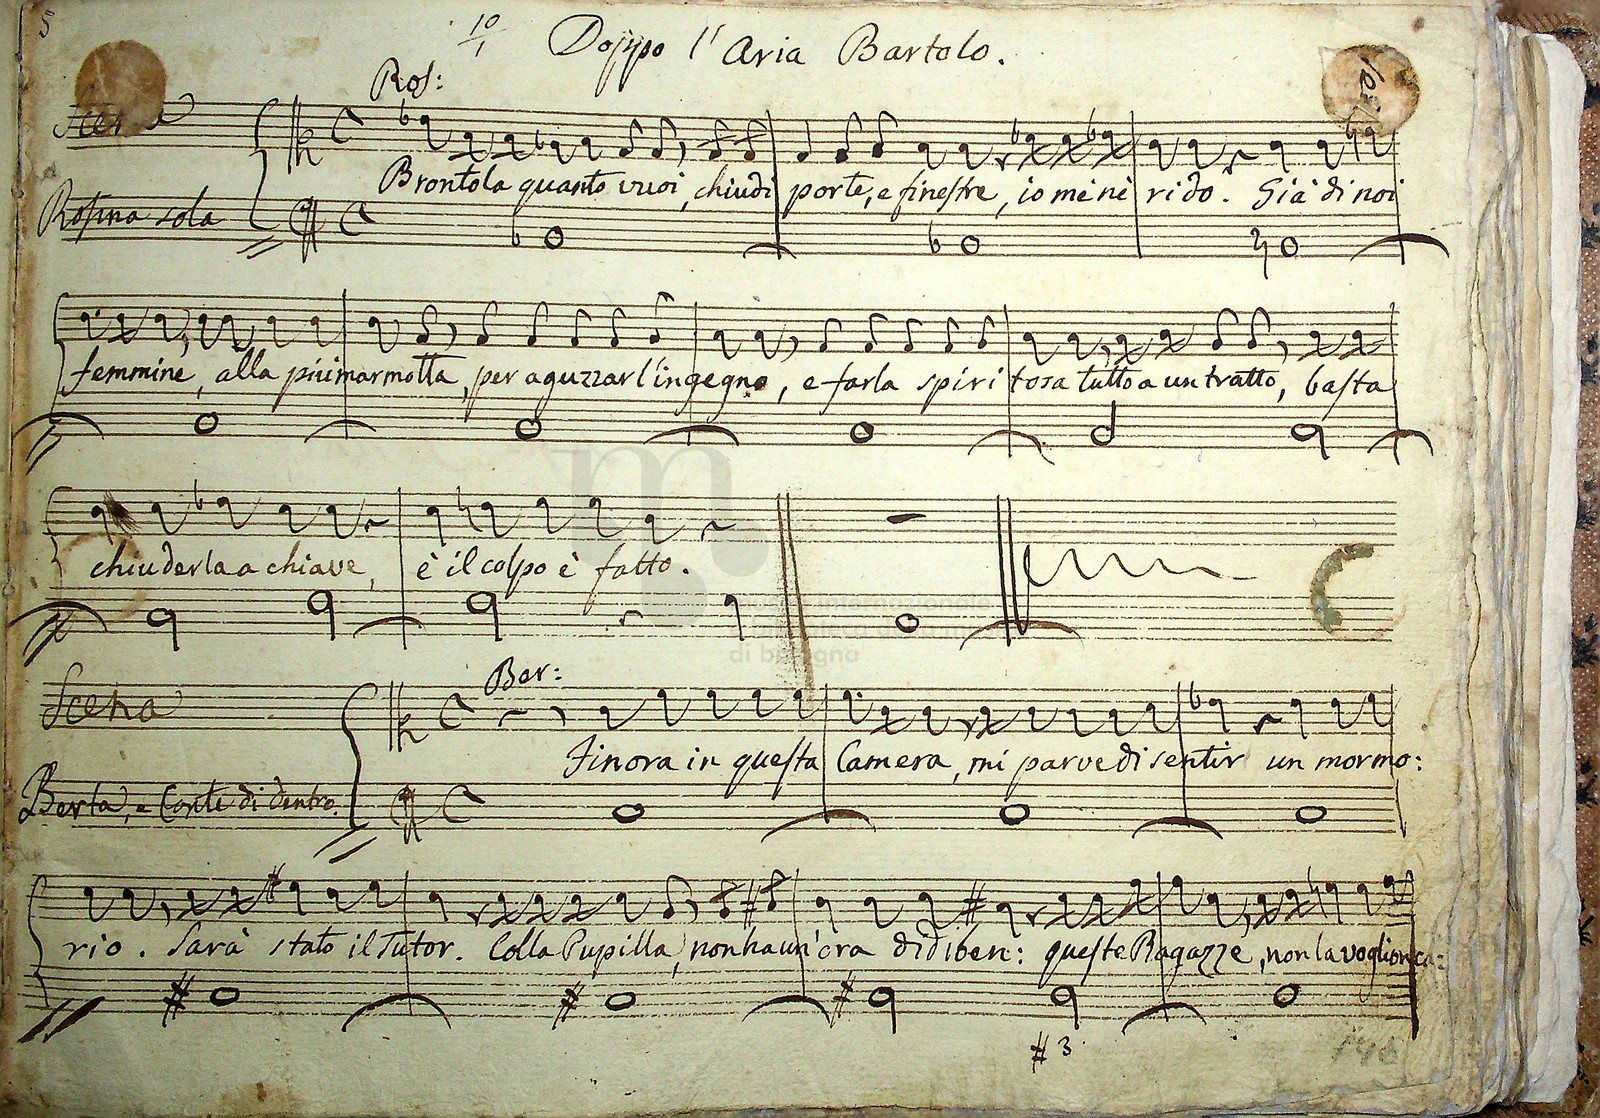 5
10
1
Doppo l'Aria Bartolo.
Ros:
Scena
Rosina sola
Brontola quanto vuoi, chiudi porte, e finestre, io me nè rido. Già di noi
femmine, alla più marmotta, per aguzzar l'ingegno, e farla spiritosa tutto a un tratto, basta
chiuderla a chiave, è il colpo è fatto.
museo internazionale
e biblioteca della musica
di bologna
Scena
Ber:
Berta, e Conte di dentro.
Finora in questa Camera, mi parve di sentir un mormo:
rio. Sarà stato il Tutor. Colla Pupilla, non ha un'ora di di ben: queste Ragazze, non la voglion ca:
#3
146